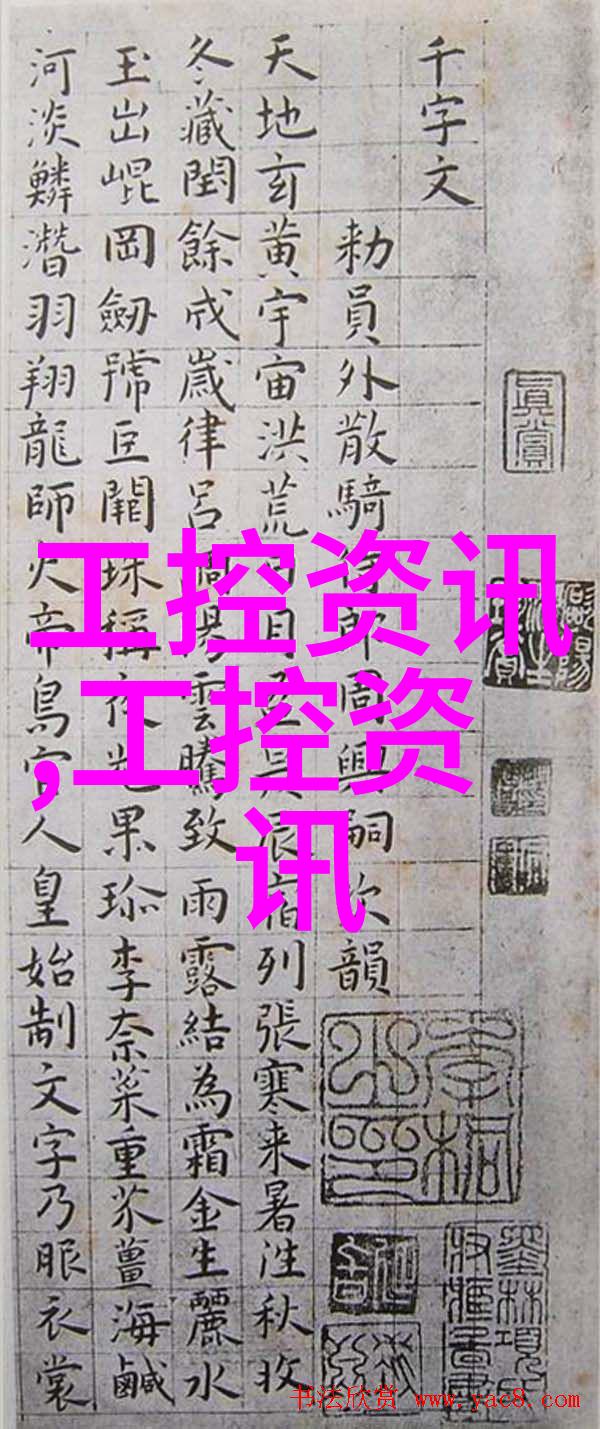 千字文
勑員外散騎侍郎周興嗣次韻
天地玄黃宇宙洪荒日月盈昃辰宿列張寒来暑往秋收
冬藏閏餘成歲律呂調陽雲騰致雨露結為霜金生麗水
玉出崐岡劒號巨闕珠稱夜光果珎李柰菜重芥薑海鹹
河淡鱗潛羽翔龍師火帝鳥官人皇始制文字乃服衣裳
真賞
工控资讯
,工控资
讯
书法欣赏 www.yac8.com